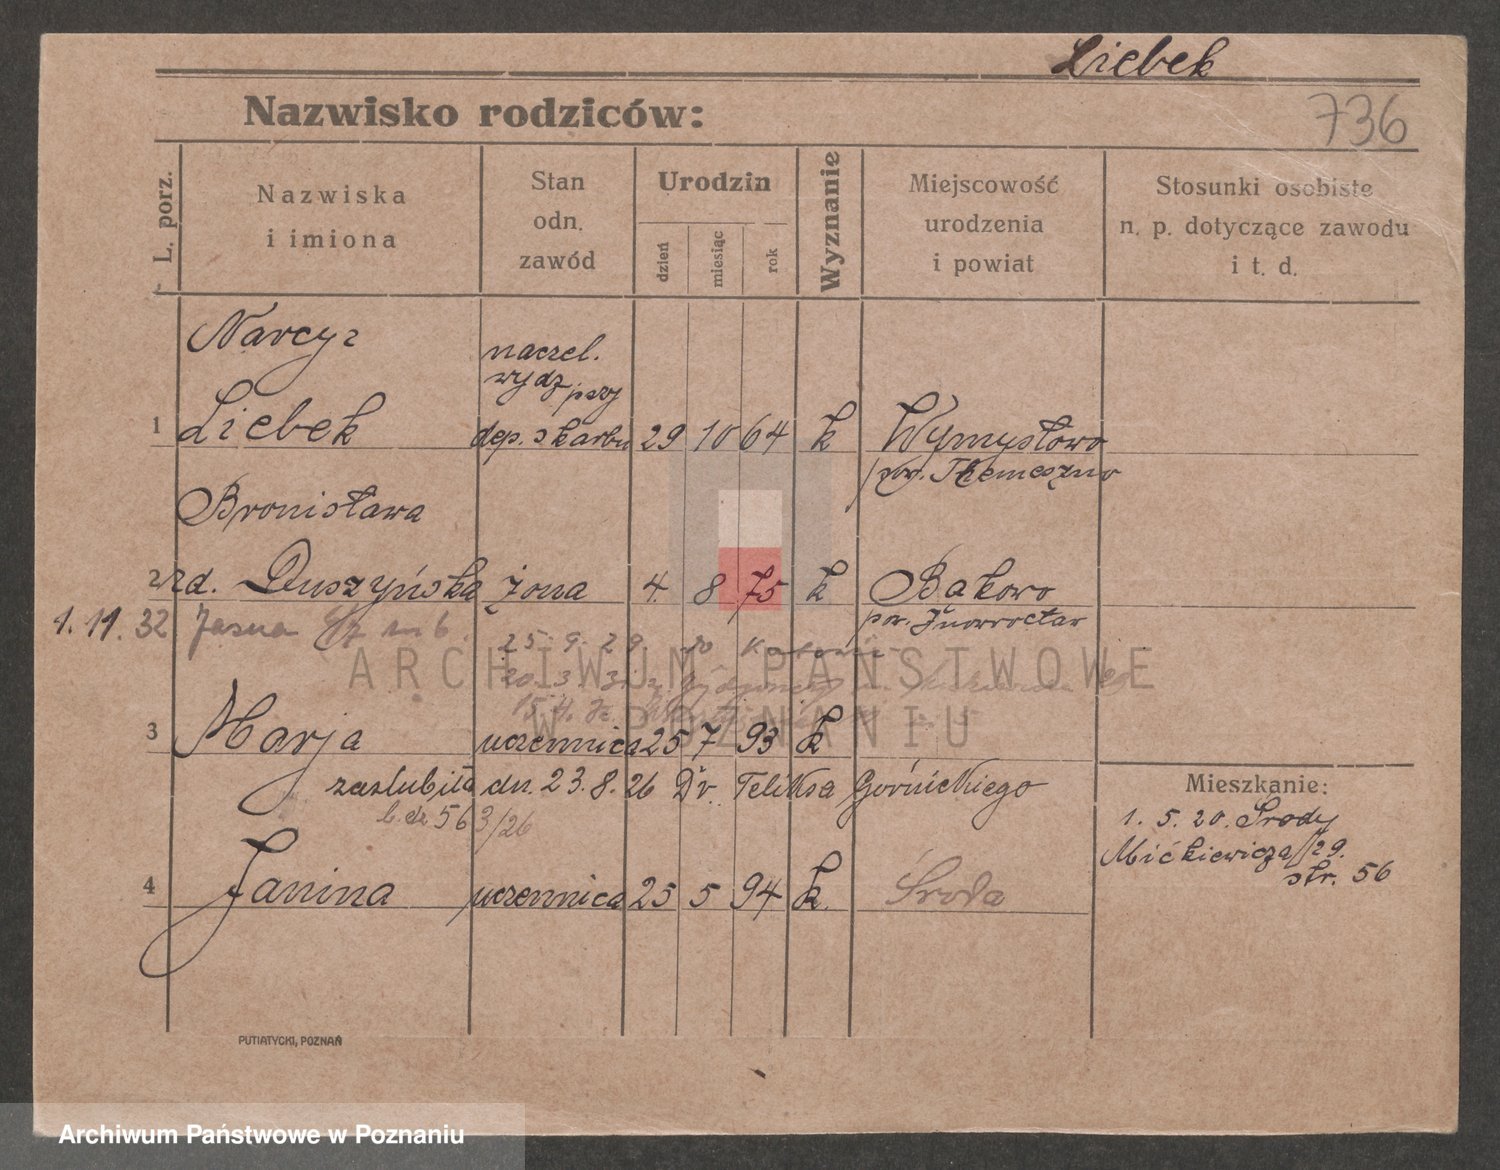 Liebek
Nazwisko rodziców:
736
L. porz.
Nazwiska
i imiona
Stan
odn.
zawód
Urodzin
dzień
miesiąc
rok
Wyznanie
Miejscowość
urodzenia
i powiat
Stosunki osobiste
n. p. dotyczące zawodu
i t. d.
Narcyz
naczel.
wydz przy
1 Liebek dep. skarbu 29 10 64 k Wymysłowo
pow. Tżemeszno
Bronisława
2 zd. Duszyńska żona 4. 8 75 k Bąkowo
pow. Inowrocław
1. 11. 32 Jasna m 6.
25. 9. 29. do
20. 3. 31. z
ARCHIWUM PAŃSTWOWE
W POZNANIU
3 Marja uczennica 25 7 93 k
zaślubiła dn. 23. 8. 26 Dr. Feliksa Górnickiego
563/26
Mieszkanie:
1. 5. 20. Środy
Mićkiewicza 29.
str. 56
4 Janina uczennica 25 5 94 k. Środa
PUTIATYCKI, POZNAŃ
Archiwum Państwowe w Poznaniu